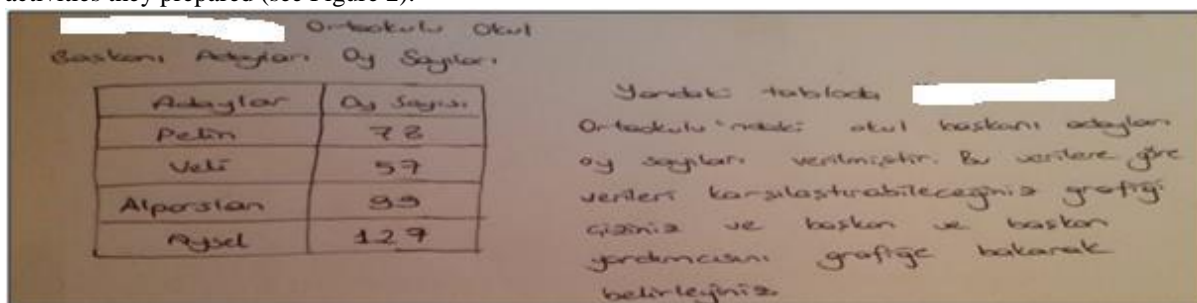 activities they prepared (see Figure 2).
Ortaokulu Okul
Başkanı Adayları Oy Sayıları
Adaylar Oy Sayısı
Pelin 78
Veli 57
Alparslan 99
Aysel 127
Yandaki tabloda
Ortaokulu'ndaki okul başkanı adayları
oy sayıları verilmiştir. Bu verilere göre
verileri karşılaştırabileceğiniz grafiği
çiziniz ve başkan ve başkan
yardımcısını grafiğe bakarak
belirleyiniz.